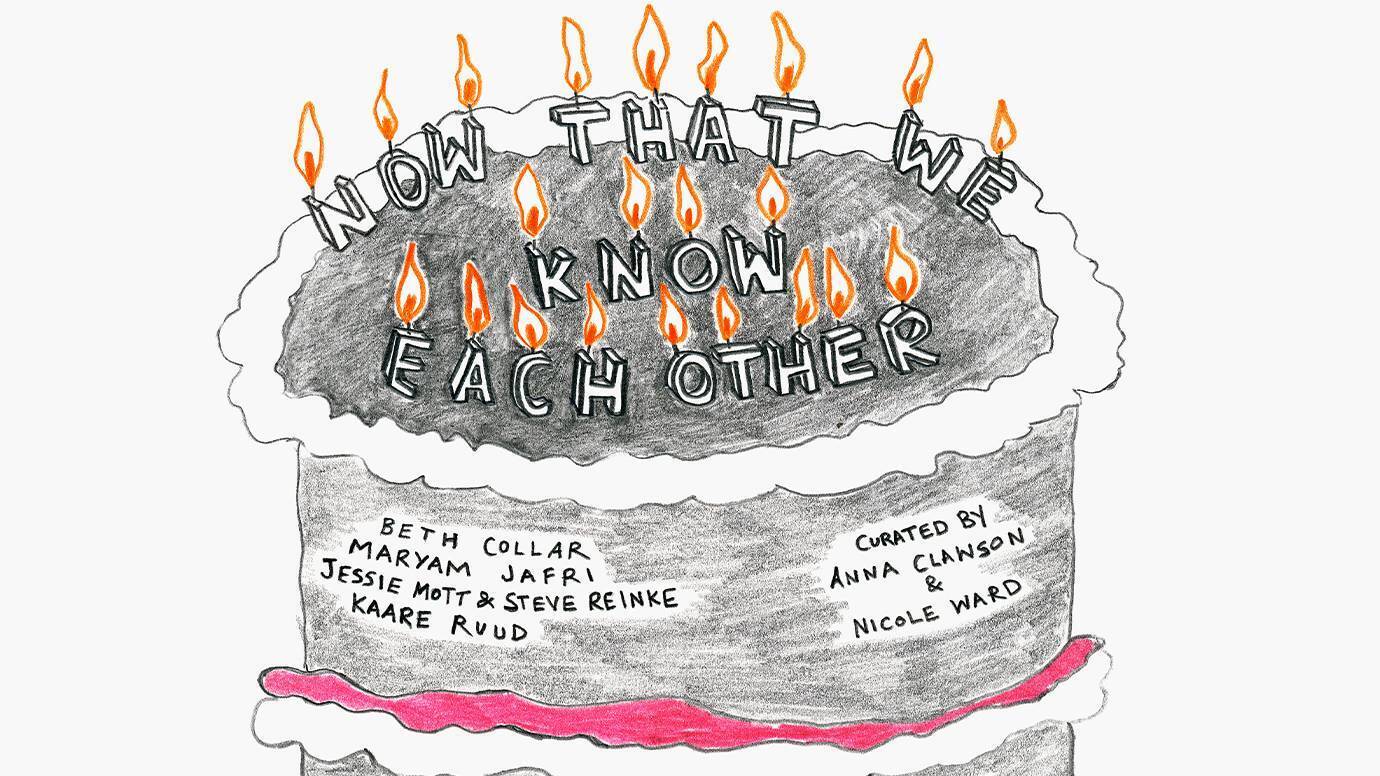 NOW THAT WE
KNOW
EACH OTHER
BETH COLLAR
MARYAM JAFRI
JESSIE MOTT & STEVE REINKE
KAARE RUUD
CURATED BY
ANNA CLAWSON
&
NICOLE WARD